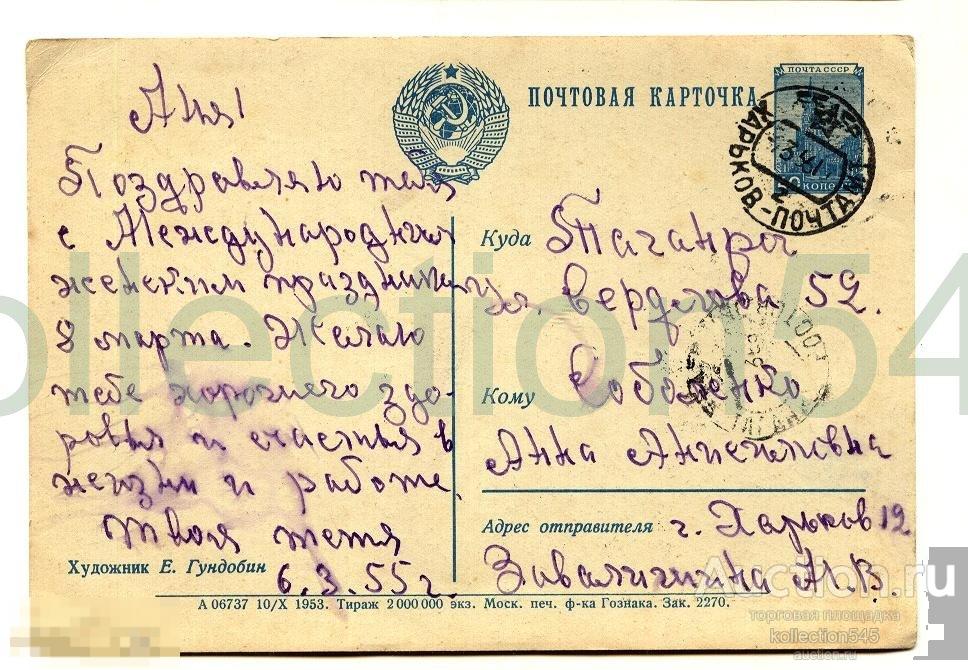 Аня!
Поздравляю тебя
с Международным
женским праздником
8 марта. Желаю
тебе хорошего здо-
ровья и счастья в
жизни и работе.
Твоя тетя
6.3.55 г.
Художник Е. Гундобин
ПОЧТОВАЯ КАРТОЧКА
ПОЧТА СССР
КОПЕЕК
ХАРЬКОВ-ПОЧТАМТ
Куда Таганрог
ул. Свердлова 52.
Кому Соболенко
Анна
Адрес отправителя г. Харьков 12
Завалишина А.В.
А 06737 10/X 1953. Тираж 2 000 000 экз. Моск. печ. ф-ка Гознака. Зак. 2270.
kollection545
Auction.ru
торговая площадка
kollection545
auction.ru